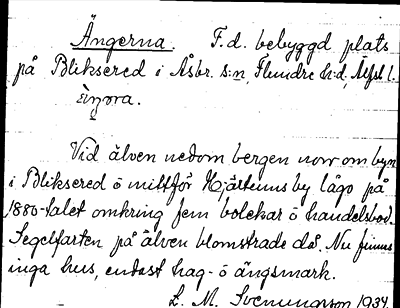 Ängerna. F.d. bebyggd plats
på Bliksered i Åsbr. s:n, Flundre h:d, Älfsb l.
Vid älven nedom bergen norr om byn
i Bliksered o mittför Hjärtums by lågo på
1880-talet omkring fem bolekar o handelsbod.
Segelfarten på älven blomstrade då. Nu finnes
inga hus, endast hag- o ängsmark.
L. M. Svenungsson 1934.